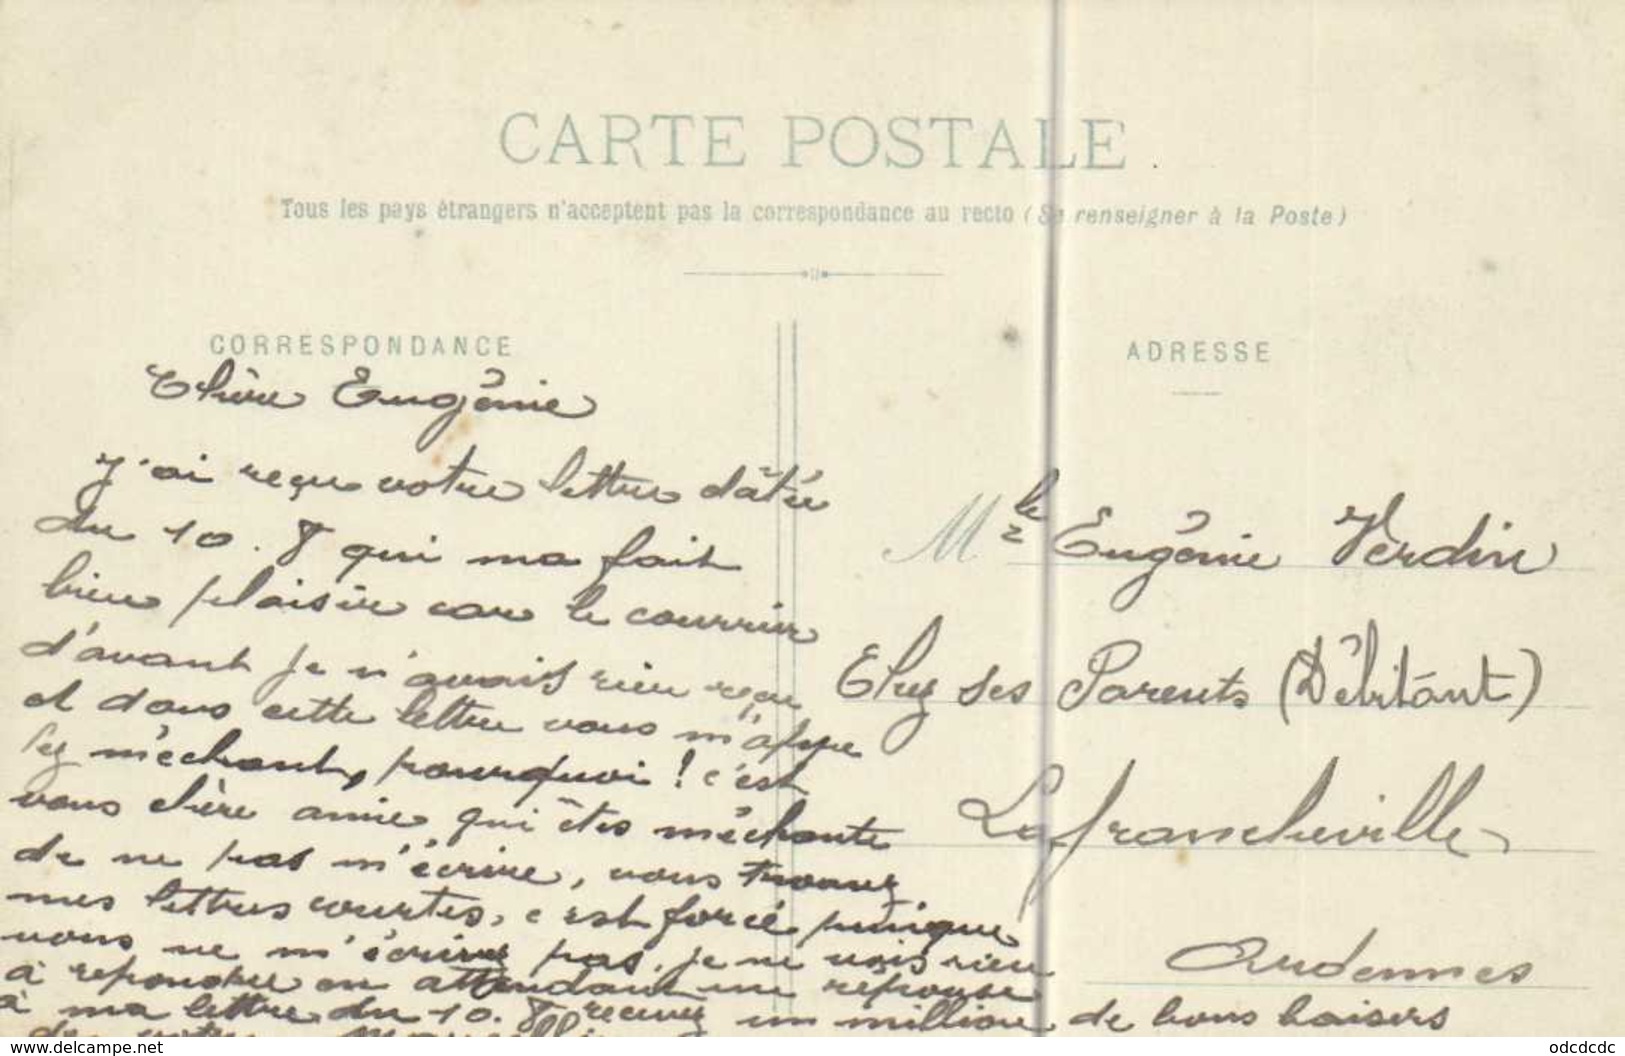 CARTE POSTALE
Tous les pays étrangers n'acceptent pas la correspondance au recto (Se renseigner à la Poste)
CORRESPONDANCE
Chère Eugénie
J'ai reçu votre lettre dâtée
du 10. 8 qui ma fait
bien plaisir car le courrier
d'avant je n'avais rien reçu
et dans cette lettre vous m'appe
lez méchant, pourquoi! c'est
vous chère amie qui êtes méchante
de ne pas m'écrire, vous trouvez
mes lettres courtes, c'est forcé puisque
vous ne m'écrivez pas. je ne vois rien
à repondre en attendant une réponse
à ma lettre du 10. 8 recevez un million de bons baisers
de votre
ADRESSE
Mlle Eugénie Verdin
Chez ses Parents (Débitant)
Lafrancheville
Ardennes
www.delcampe.net
odcdcdc